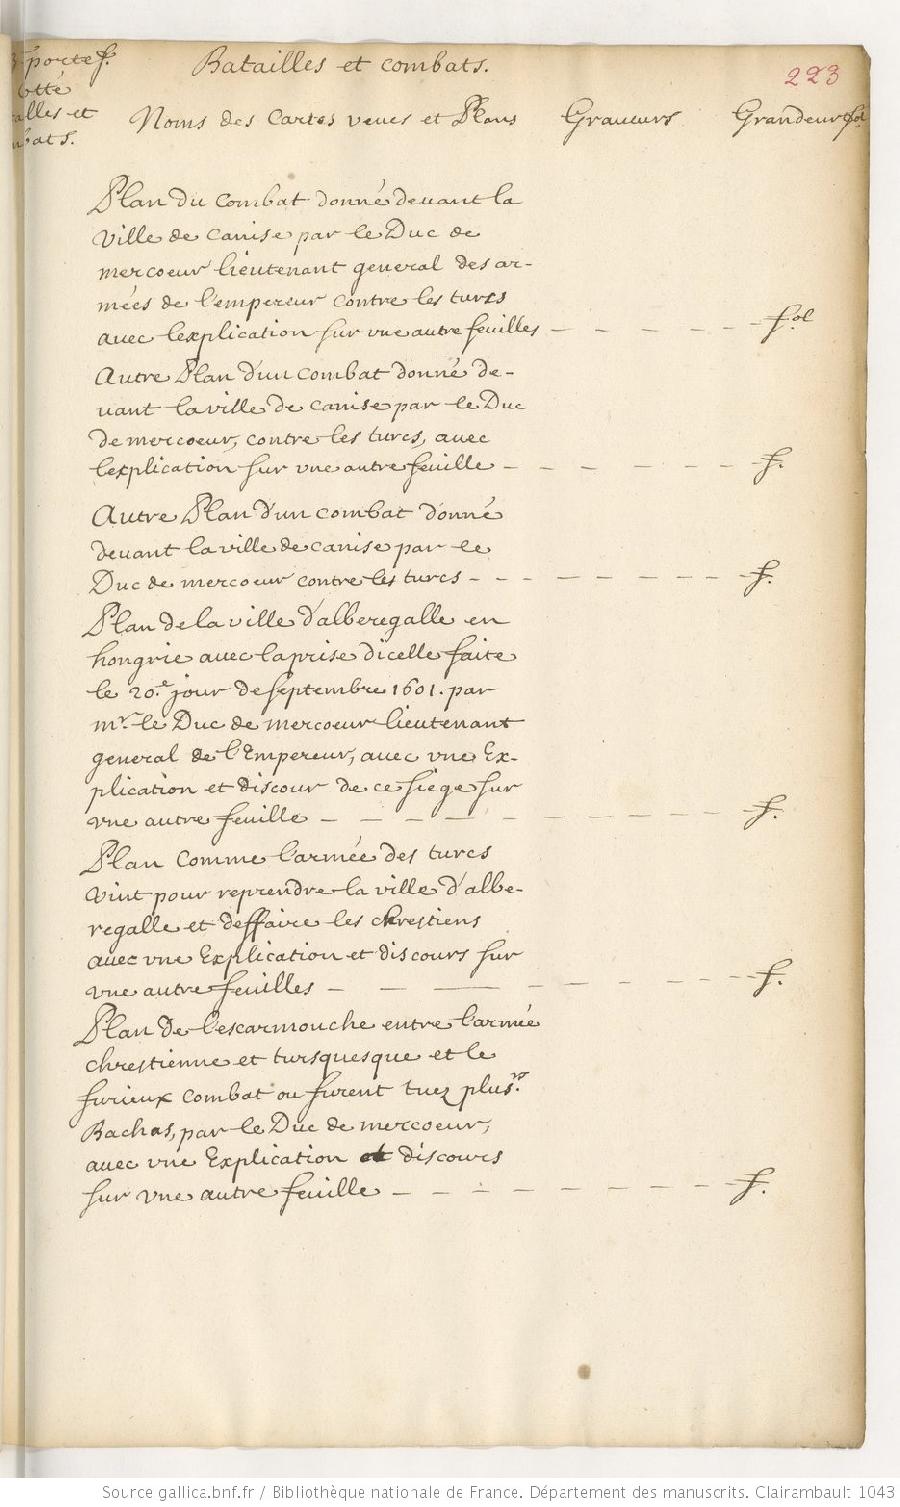 portef.
Batailles et combats.
223
otté
alles et
bats.
Noms des Cartes veues et Plans Graueurs Grandeurs
Plan du combat donné deuant la
ville de canise par le Duc de
mercoeur lieutenant general des ar-
mées de l'empereur contre les turcs
auec lexplication sur vne autre feuilles - - - - - fol
Autre Plan d'un combat donné de-
uant la ville de canise par le Duc
de mercoeur, contre les turcs, auec
lexplication sur vne autre feuille - - - - - - f.
Autre Plan d'un combat donné
deuant la ville de canise par le
Duc de mercoeur contre les turcs - - - - - - - - f.
Plan de la ville d'alberegalle en
hongrie auec la prise dicelle faite
le 20.e jour de septembre 1601. par
mr. le Duc de mercoeur lieutenant
general de l'Empereur, auec vne Ex-
plication et discour de ce siege sur
vne autre feuille - - - - - - - - - - f.
Plan comme l'armée des turcs
vint pour reprendre la ville d'albe-
regalle et deffaire les chrestiens
auec vne Explication et discours sur
vne autre feuilles - - - - - - - - f.
Plan de l'escarmouche entre l'armée
chrestienne et tursquesque et le
furieux combat ou furent tuez plus.rs
Bachas, par le Duc de mercoeur,
auec vne Explication et discours
sur vne autre feuille - - - - - - - - - f.
Source gallica.bnf.fr / Bibliothèque nationale de France. Département des manuscrits. Clairambault 1043